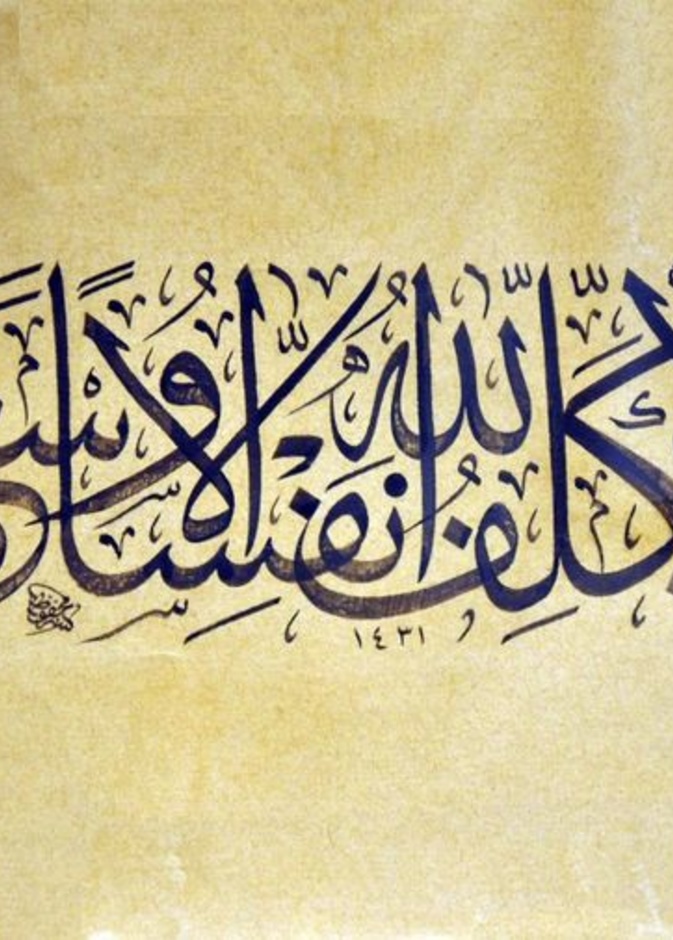 كَلِّفُ اللّٰهُ نَفْسًا إِلَّا وُسْ
١٤٣١